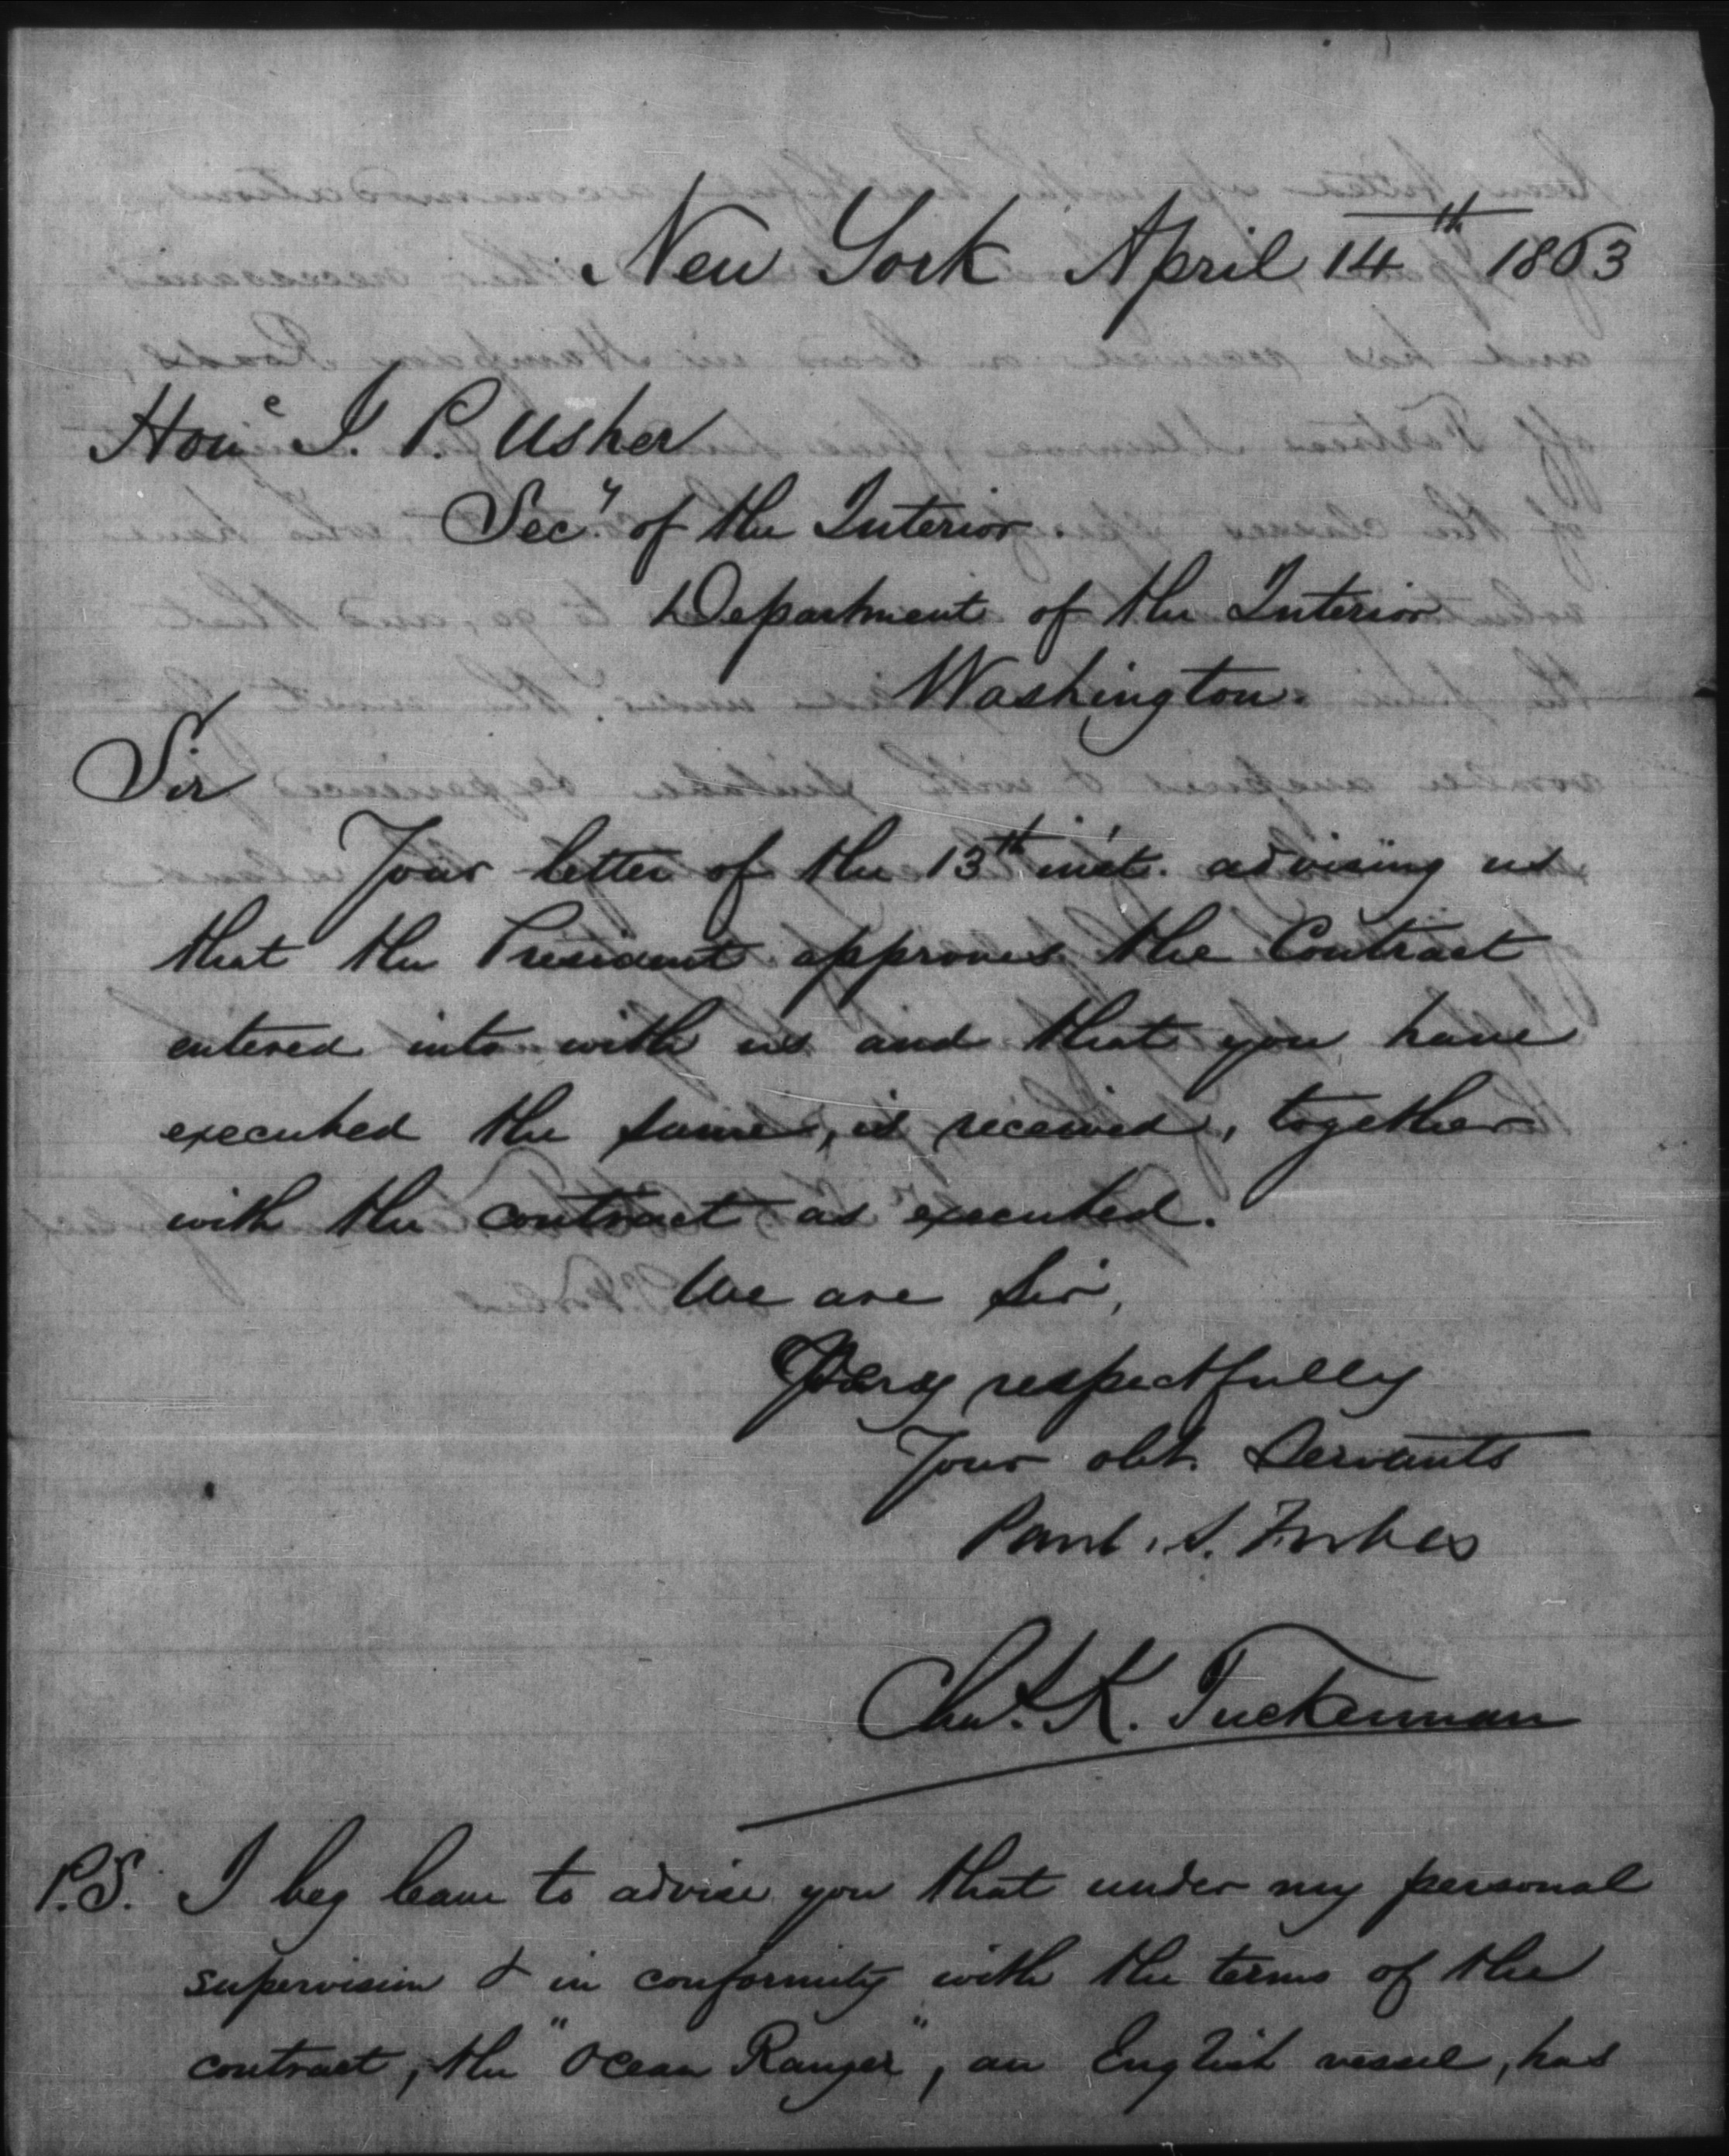 New York April 14th 1863
Hone J. P. Usher
Secy. of the Interior
Department of the Interior
Washington.
Sir
Your letter of the 13th inst. advising us
that the President approves the Contract
entered into with us and that you have
executed the same, is received, together
with the contract as executed.
We are Sir,
Very respectfully
Your obt. Servants
Paul. S. Forbes
Chas. K. Tuckerman
P.S. I beg leave to advise you that under my personal
supervision & in conformity with the terms of the
contract, the "Ocean Ranger", an English vessel, has